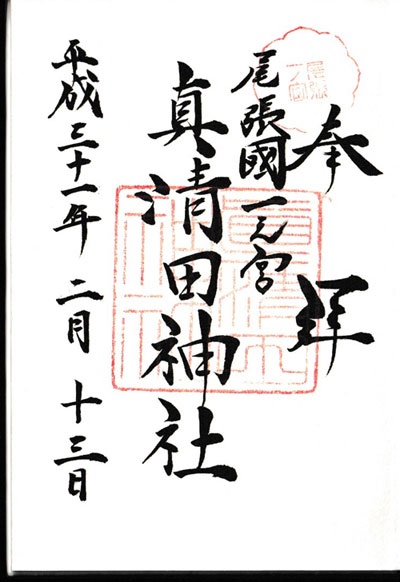 奉拝
尾張國一之宮
真清田神社
平成三十一年 二月 十三日